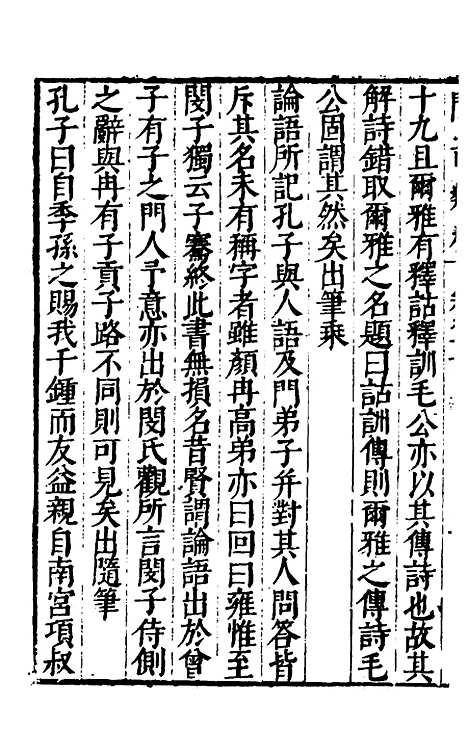 十九且爾雅有釋詁釋訓毛公亦以其傳詩也故其
解詩錯取爾雅之名題曰詁訓傳則爾雅之傳詩毛
公固謂其然矣出筆乘
論語所記孔子與人語及門弟子并對其人問答皆
斥其名未有稱字者雖顏冉高弟亦曰回曰雍惟至
閔子獨云子騫終此書無損名昔賢謂論語出於曾
子有子之門人予意亦出於閔氏觀所言閔子侍側
之辭與冉有子貢子路不同則可見矣出隨筆
孔子曰自季孫之賜我千鍾而友益親自南宮項叔